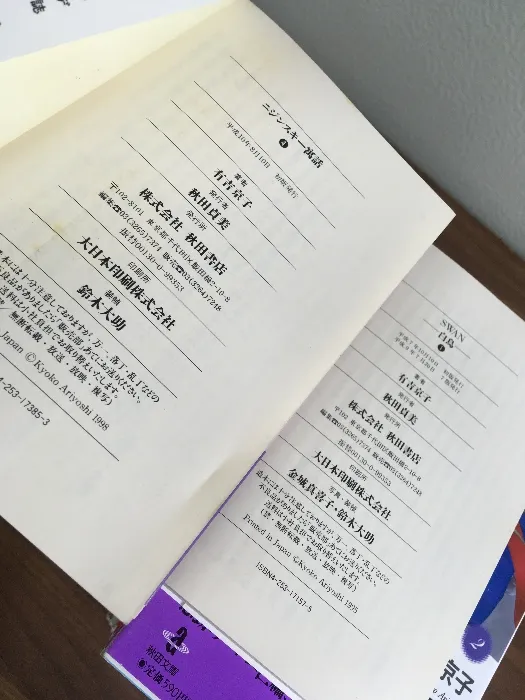 ニジンスキー寓話
4
平成10年8月10日 初版発行
著者
有吉京子
発行者
秋田貞美
発行所
株式会社 秋田書店
〒102-8101 東京都千代田区飯田橋2-10-8
編集☎03(3265)7374 販売☎03(3264)7248
振替00130-0-99353
印刷所
大日本印刷株式会社
装幀
鈴木大助
本には十分注意しておりますが、万一、落丁・乱丁などの
良品がありましたら「販売部」あてにお送りください。
送料は小社負担でお取り替えいたします。
無断転載・放送・放映・複写
Japan ©Kyoko Ariyoshi 1998
4-253-17385-3
SWAN
白鳥
1
平成7年10月10日 初版発行
7版発行
著者
有吉京子
発行者
秋田貞美
発行所
株式会社 秋田書店
〒102 東京都千代田区飯田橋2-10-8
振替00130-0-99353
印刷所
大日本印刷株式会社
写真・装幀
金城真喜子・鈴木大助
造本には十分注意しておりますが、万一、落丁・乱丁などの
不良品がありましたら「販売部」あてにお送りください。
送料は小社負担でお取り替えいたします。
(禁・無断転載・放送・放映・複写)
Printed in Japan ©Kyoko Ariyoshi 1995
ISBN4-253-17157-5
秋田文庫
定価590円
2
京子